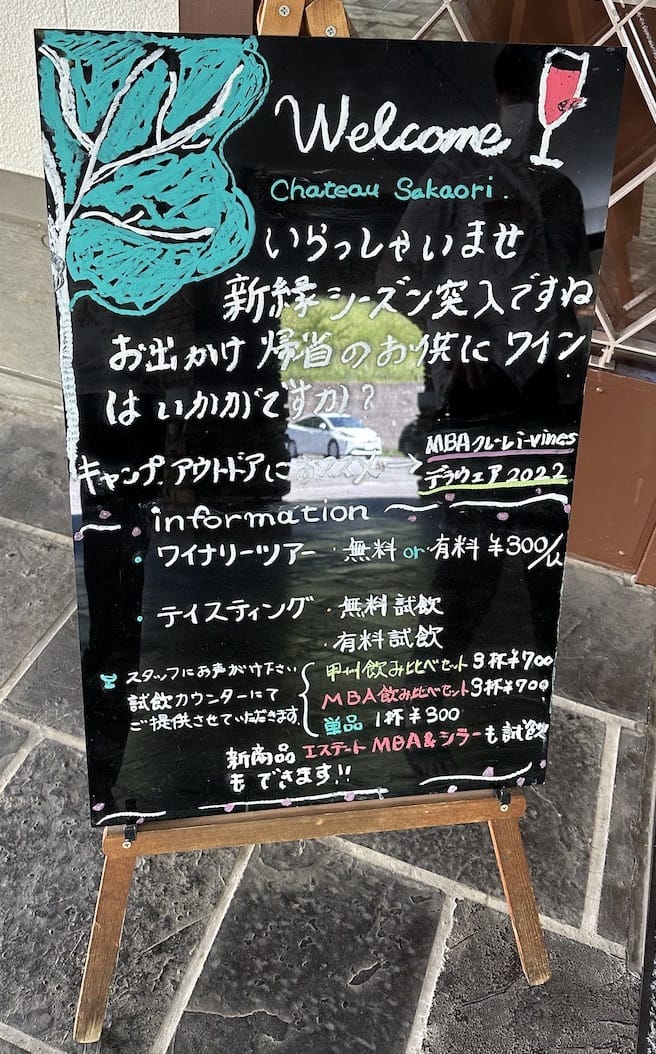 Welcome
Chateau Sakaori.
いらっしゃいませ
新緑シーズン突入ですね
お出かけ 帰省のお供に ワイン
はいかがですか?
キャンプ、アウトドアにおススメ→ MBAクレーレi-vines
デラウェア 2022
information
・ワイナリーツアー ・無料 or・有料 ¥300/人
・テイスティング ・無料試飲
・有料試飲
スタッフにお声がけ下さい
試飲カウンターにて
ご提供させていただきます。
甲州飲み比べセット3杯¥700
MBA飲み比べセット3杯¥700
単品 1杯¥300
新商品 エステート MBA&シラーも試飲
もできます!!